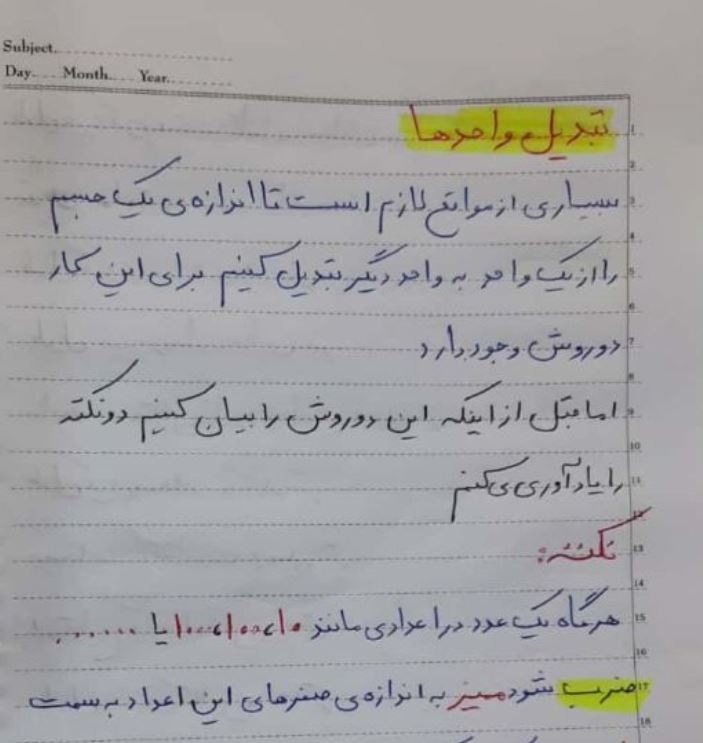 Subject
Day Month Year
تبدیل واحدها
بسیاری از مواقع لازم است تا اندازه‌ی یک جسم
را از یک واحد به واحد دیگر تبدیل کنیم برای این کار
دو روش وجود دارد
اما قبل از اینکه این دو روش را بیان کنیم دو نکته
را یادآوری می کنم
نکته:
هرگاه یک عدد در اعدادی مانند ۱۰، ۱۰۰، ۱۰۰۰ یا ......
ضرب شود ممیز به اندازه‌ی صفرهای این اعداد به سمت